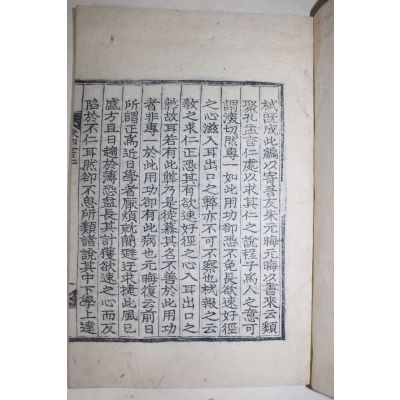 栻旣成此編以寄吾友朱元晦元晦以書來云類
聚孔孟言仁處以求其仁之說程子爲人之意可
謂深切然專一如此用功却恐不免長欲速好徑
之心滋入耳出口之弊亦不可不察也栻報之云
敎之求仁正恐其有欲速好徑之心入耳出口之
弊故耳若有此弊乃是徒慕其名不善於此用功
者非專一於此用功却有此病也元晦復云前日
所謂正爲近日學者厭煩就簡避迂求捷此風已
盛方且日趨於薄恐益長其計獲欲速之心而反
陷於不仁耳然却不思所類諸說其中下學上達